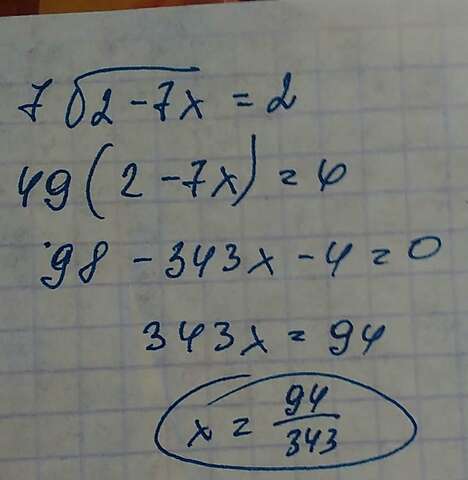 7√(2-7x) = 2
49(2-7x) = 4
98 - 343x - 4 = 0
343x = 94
x = 94/343